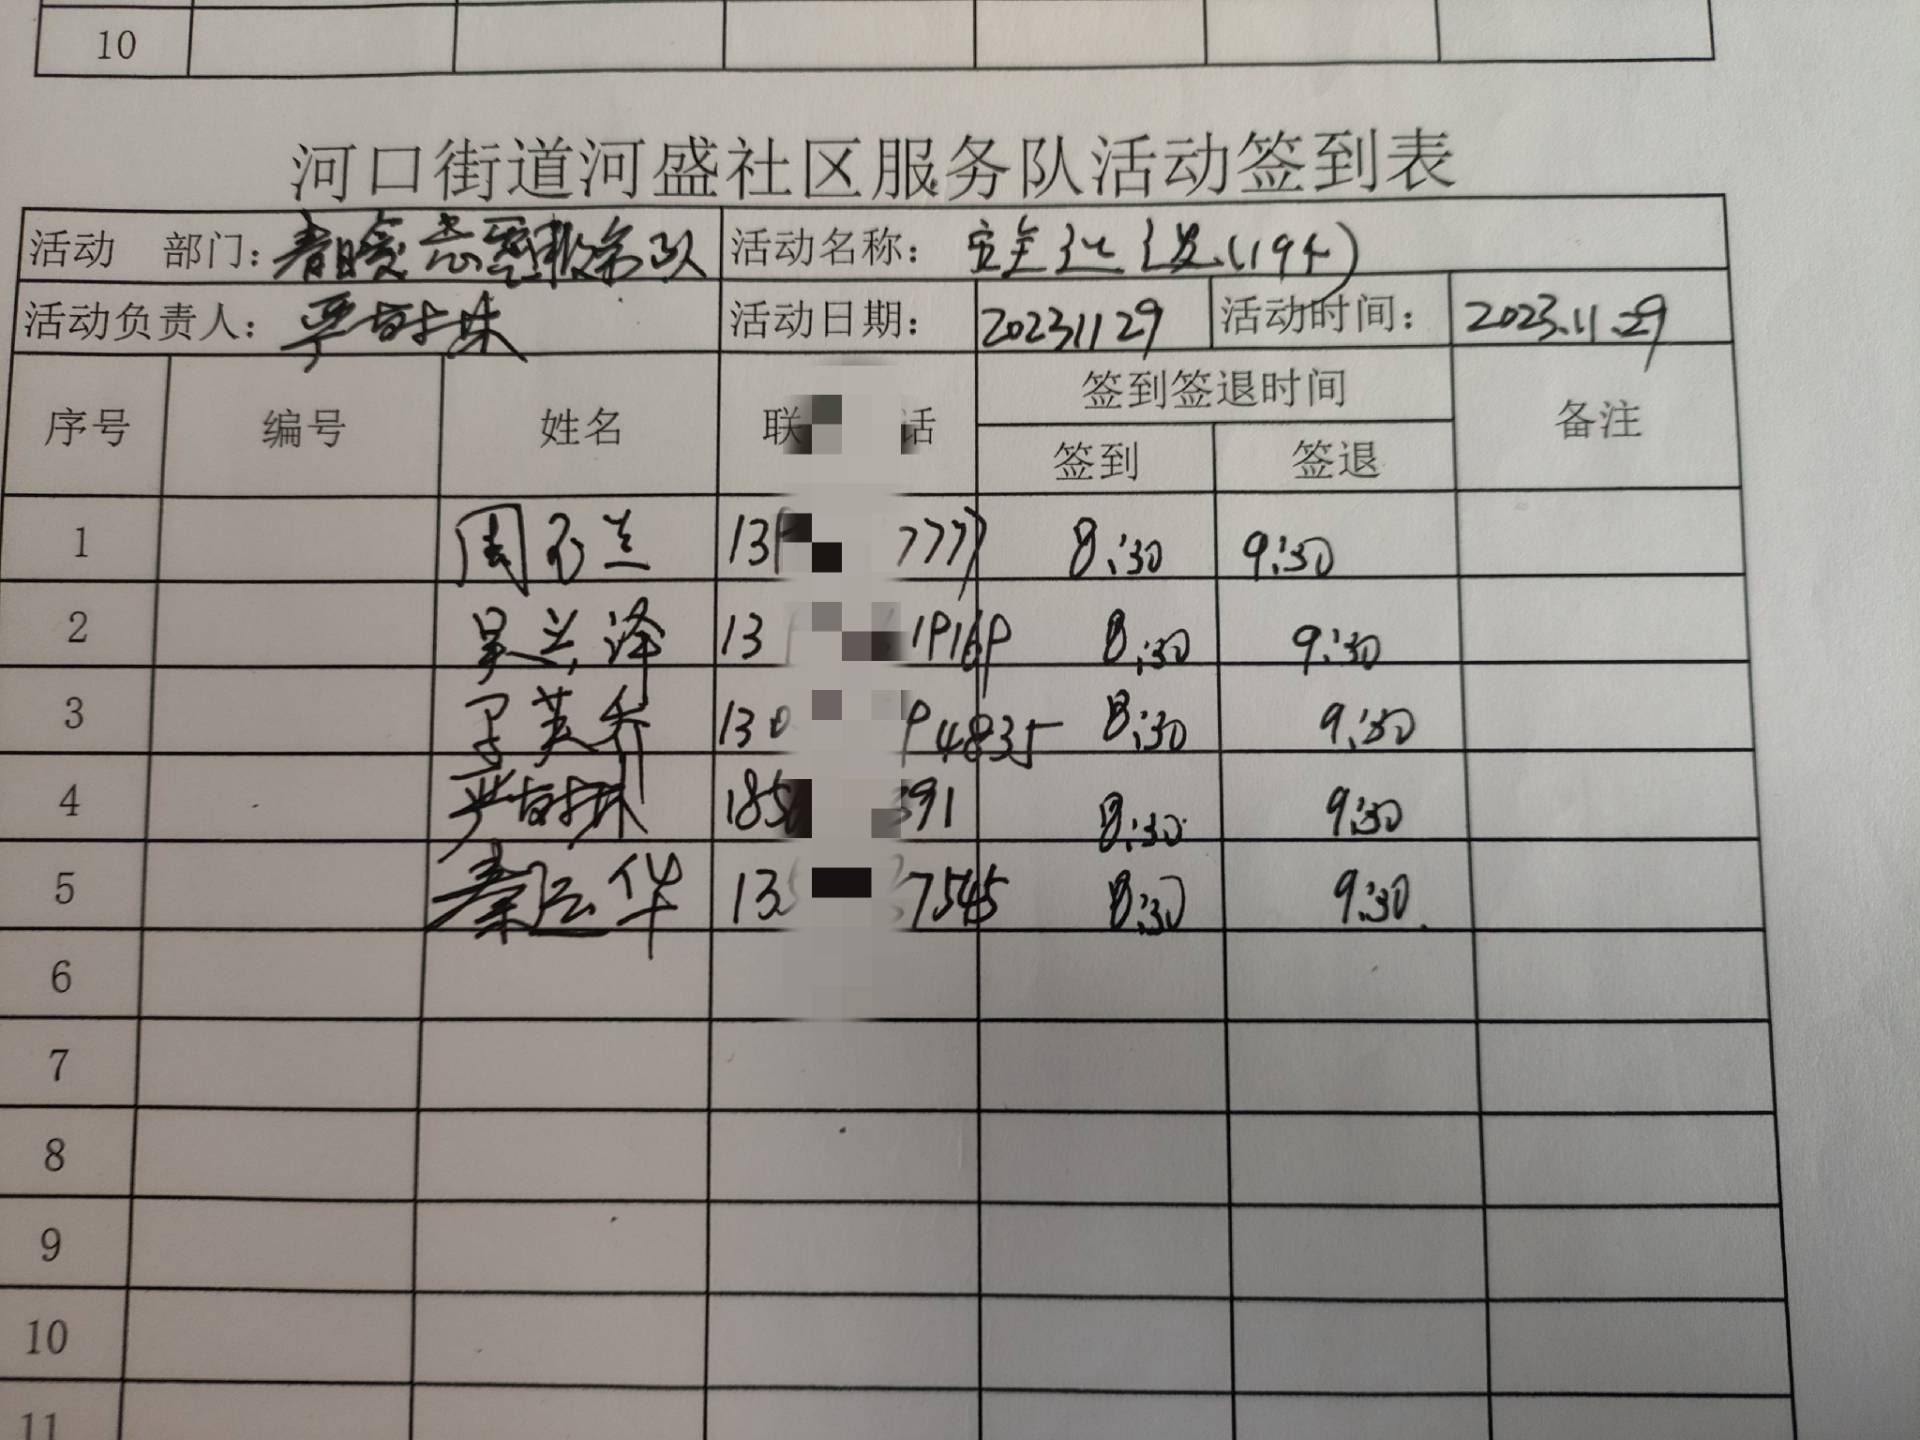 10
河口街道河盛社区服务队活动签到表
活动 部门：春暖志愿服务队 活动名称：安全巡逻(194)
活动负责人：严 珠 活动日期：20231129 活动时间：2023.11.29
序号 编号 姓名 联 话 签到签退时间 备注
签到 签退
1 周 兰 13 777 8:30 9:30
2 吴兰泽 13 19169 8:30 9:30
3 美乔 130 94835 8:30 9:30
4 严 珠 185 391 8:30 9:30
5 秦运华 13 7545 8:30 9:30
6
7
8
9
10
11